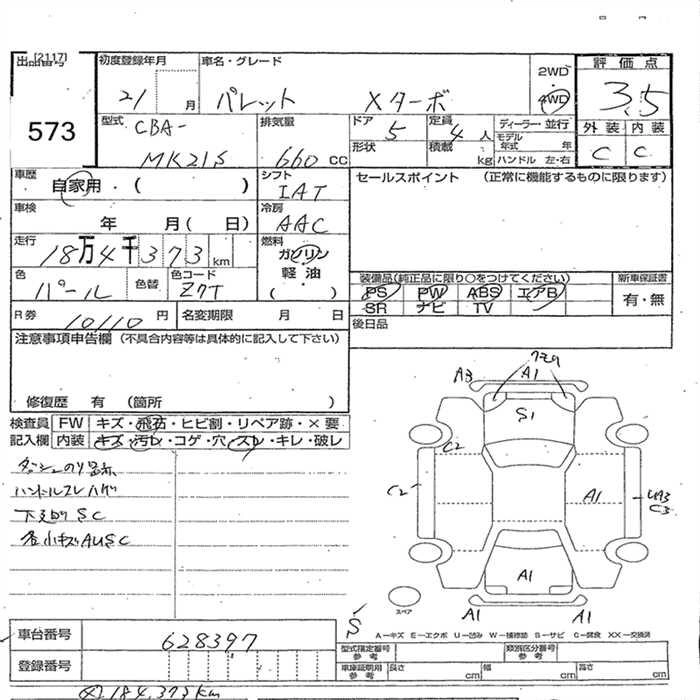 出品番号 [2117]
573
初度登録年月 21 月
車名・グレード パレット Xターボ
2WD
4WD
評価点 3.5
外装 内装
C C
型式 CBA-
MK21S
排気量 660 CC
ドア 5
形状
定員 4 人
積載 kg
ディーラー・並行
モデル年式 年
ハンドル 左・右
車歴 自家用・( )
シフト IAT
セールスポイント (正常に機能するものに限ります)
車検 年 月( 日)
冷房 AAC
走行 18万4千373 km
燃料 ガソリン
軽油
( )
色 パール
色替
色コード Z7T
装備品(純正品に限り○をつけてください)
PS PW ABS エアB
SR ナビ TV
新車保証書
有・無
R券 10110 円
名変期限 月 日
後日品
注意事項申告欄 (不具合内容等は具体的に記入して下さい)
修復歴 有 (箇所 )
検査員記入欄
FW キズ・飛石・ヒビ割・リペア跡・×要
内装 キズ・汚レ・コゲ・穴・スレ・キレ・破レ
ダッシュのり跡
ハンドルスレハゲ
下廻りSC
各小キズAUSC
A3 A1
S1
C2
C2
A1
UA3
C3
A1
A1 A1
スペア
S
A-キズ E-エクボ U-凹み W-補修跡 S-サビ C-腐食 XX-交換済
車台番号 628397
登録番号
型式指定番号 参考
類別区分番号 参考
車庫証明用 参考
長さ cm 幅 cm 高さ cm
184,373km